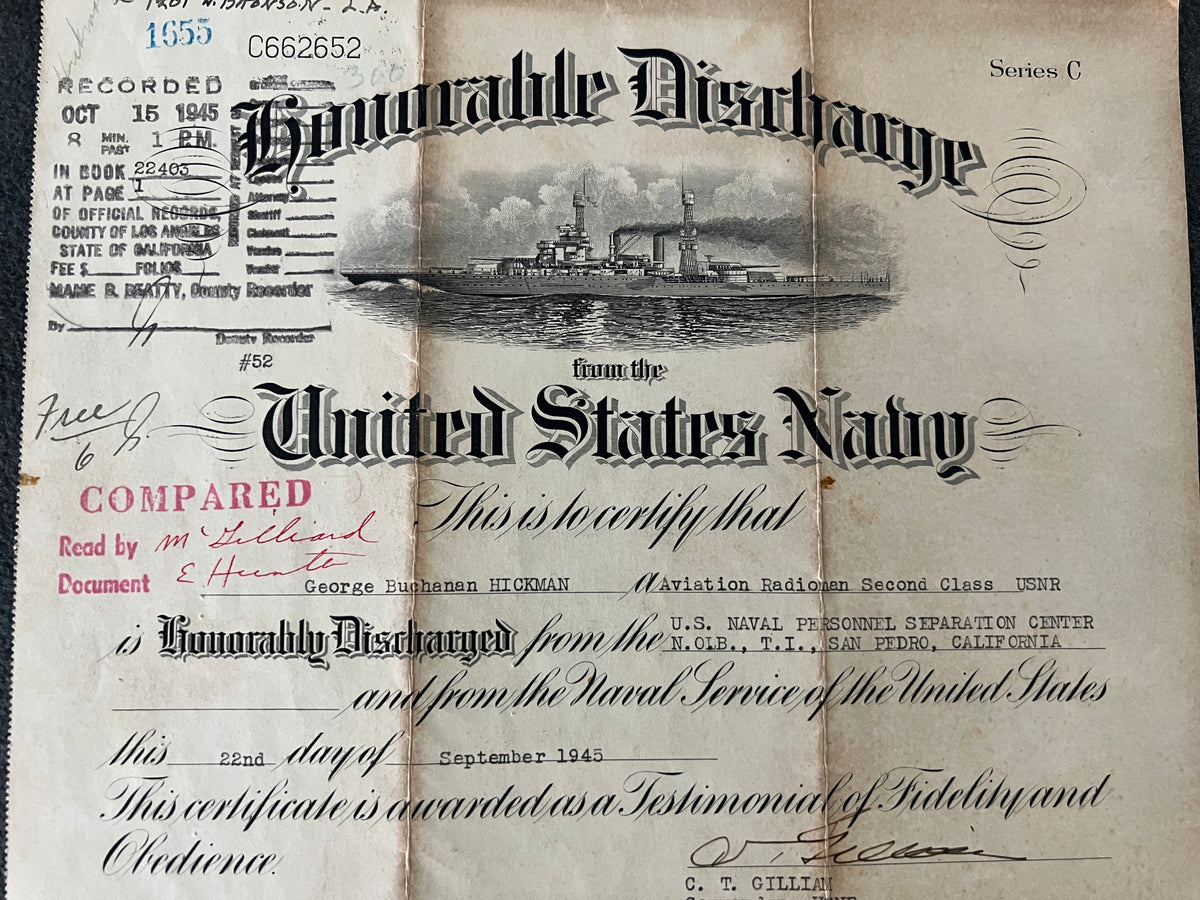 1201 N. BRONSON - L.A.
1655
C662652
300
Series C
RECORDED
OCT 15 1945
8 MIN. PAST 1 P.M.
IN BOOK 22403
AT PAGE 1
OF OFFICIAL RECORDS,
COUNTY OF LOS ANGELES
STATE OF CALIFORNIA
FEE $ FOLIOS
MAME B. BEATTY, County Recorder
By
Deputy Recorder
#52
Attorney
Sheriff
Claimant
Vendee
Vendor
Honorable Discharge
from the
United States Navy
Free
6
COMPARED
Read by McGilliard
Document E Hunte
This is to certify that
George Buchanan HICKMAN a Aviation Radioman Second Class USNR
is Honorably Discharged from the U.S. NAVAL PERSONNEL SEPARATION CENTER
N.OLB., T.I., SAN PEDRO, CALIFORNIA
and from the Naval Service of the United States
this 22nd day of September 1945
This certificate is awarded as a Testimonial of Fidelity and
Obedience.
C. T. GILLIAM